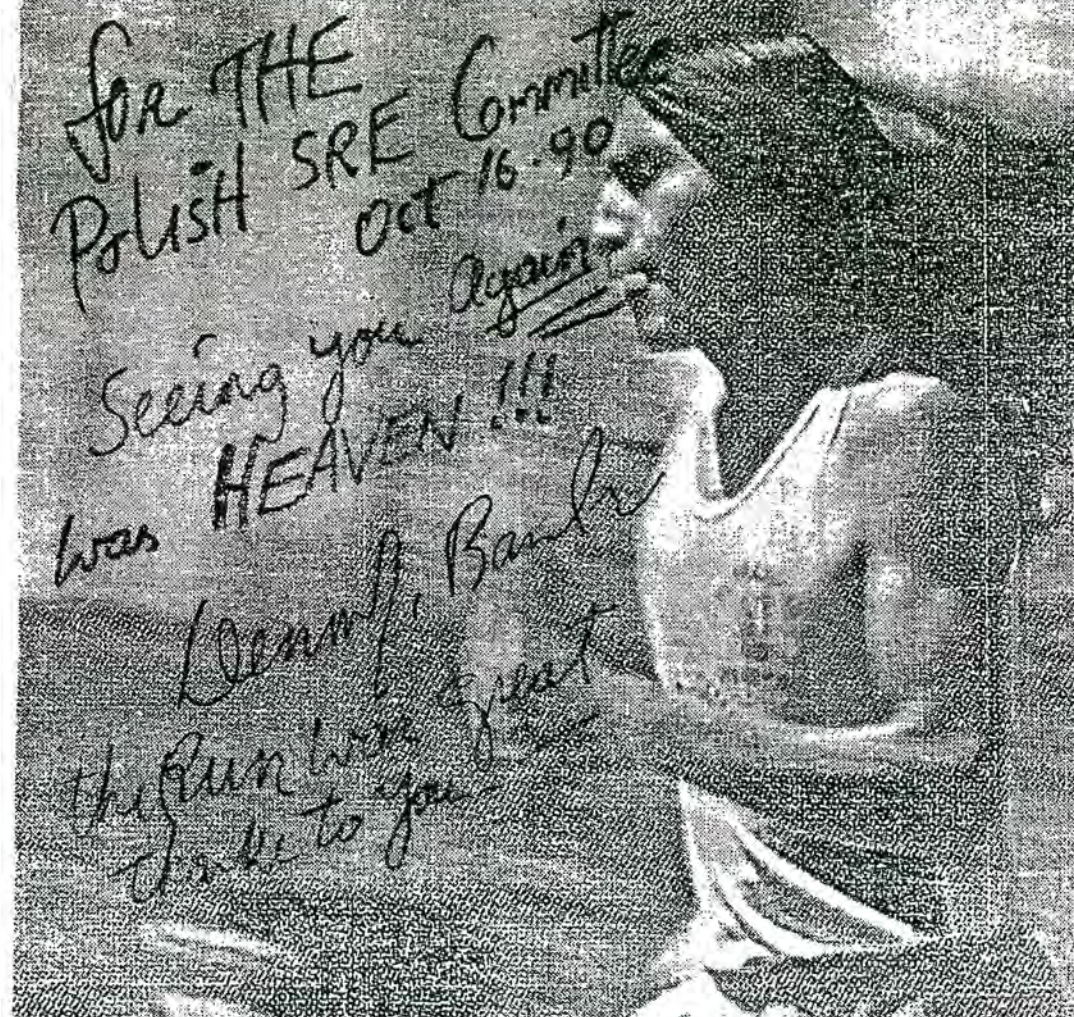 for THE
Polish SRE Committee
Oct 16-90
Seeing you again
was HEAVEN!!!
Dennis Banks
the Run was great
thanks to you